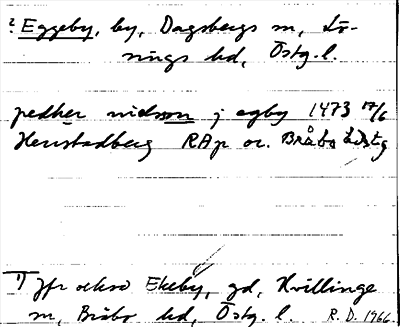 ? Eggeby, by, Dagsbergs sn, Lö-
nings hd, Östg. l.
pedher nielsson j egby 1473 17/6
Herrstadberg RAp or. Bråbo hd Östg
1) Jfr också Ekeby, gd, Kvillinge
sn, Bråbo hd, Östg. l. R. D. 1966.